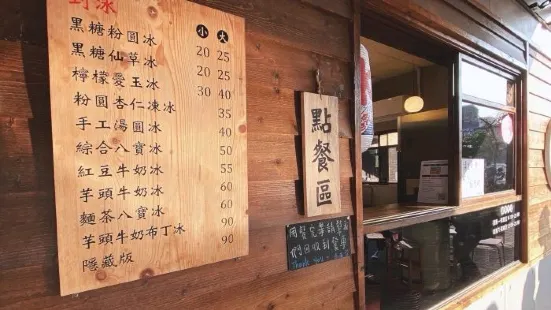 刨冰
小 大
黑糖粉圓冰 20 25
黑糖仙草冰 20 25
檸檬愛玉冰 30 40
粉圓杏仁凍冰 35
手工湯圓冰 40
綜合八寶冰 50
紅豆牛奶冰 55
芋頭牛奶冰 60
麵茶八寶冰 60
芋頭牛奶布丁冰 90
隱藏版 90
點餐區
用餐完畢請幫
們回收到餐車